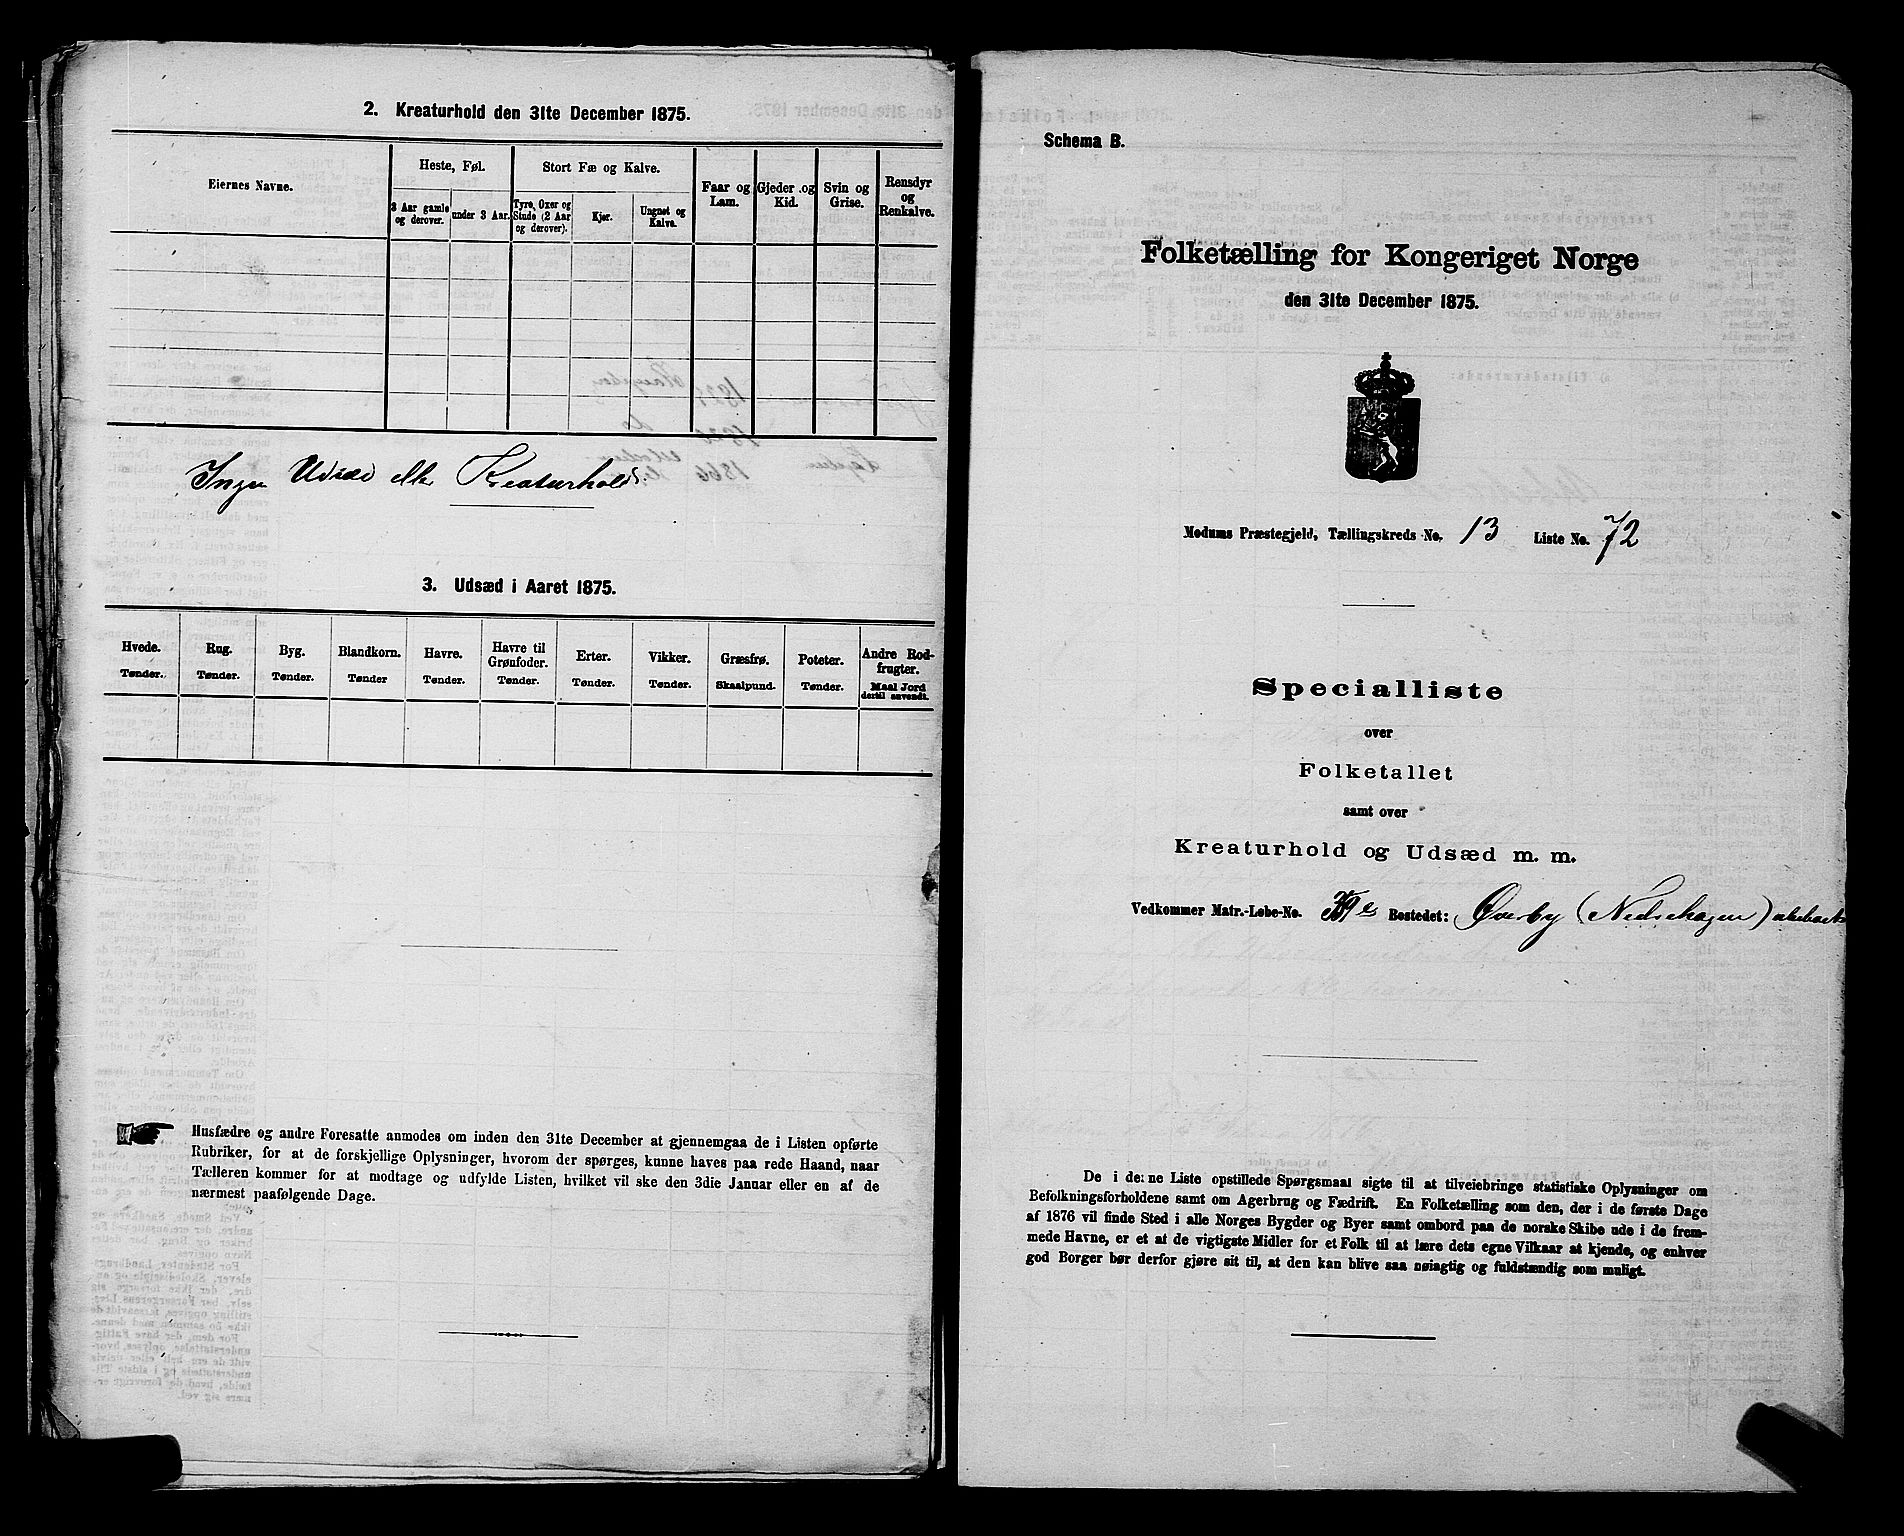 2. Kreaturhold den 31te December 1875.
Eiernes Navne.
Heste, Føl.
3 Aar gamle og derover.
under 3 Aar.
Stort Fæ og Kalve.
Tyre, Oxer og Stude (2 Aar og derover).
Kjør.
Ungnøt og Kalve.
Faar og Lam.
Gjeder og Kid.
Svin og Grise.
Rensdyr og Renkalve.
Ingen Udsæd elk Kreaturhold.
3. Udsæd i Aaret 1875.
Hvede. Tønder.
Rug. Tønder.
Byg. Tønder.
Blandkorn. Tønder
Havre. Tønder.
Havre til Grønfoder. Tønder.
Erter. Tønder.
Vikker. Tønder.
Græsfrø. Skaalpund.
Poteter. Tønder.
Andre Rodfrugter. Maal Jord dertil anvendt.
Husfædre og andre Foresatte anmodes om inden den 31te December at gjennemgaa de i Listen opførte
Rubriker, for at de forskjellige Oplysninger, hvorom der spørges, kunne haves paa rede Haand, naar
Tælleren kommer for at modtage og udfylde Listen, hvilket vil ske den 3die Januar eller en af de
nærmest paafølgende Dage.
Schema B.
Folketælling for Kongeriget Norge
den 31te December 1875.
Modums Præstegjeld, Tællingskreds No. 13 Liste No. 72
Specialliste
over
Folketallet
samt over
Kreaturhold og Udsæd m. m.
Vedkommer Matr.-Løbe-No. Bostedet: Øverby (Nedrehagen)
De i denne Liste opstillede Spørgsmaal sigte til at tilveiebringe statistiske Oplysninger om
Befolkningsforholdene samt om Agerbrug og Fædrift. En Folketælling som den, der i de første Dage
af 1876 vil finde Sted i alle Norges Bygder og Byer samt ombord paa de norske Skibe ude i de frem-
mede Havne, er et af de vigtigste Midler for et Folk til at lære dets egne Vilkaar at kjende, og enhver
god Borger bør derfor gjøre sit til, at den kan blive saa nøiagtig og fuldstændig som muligt.